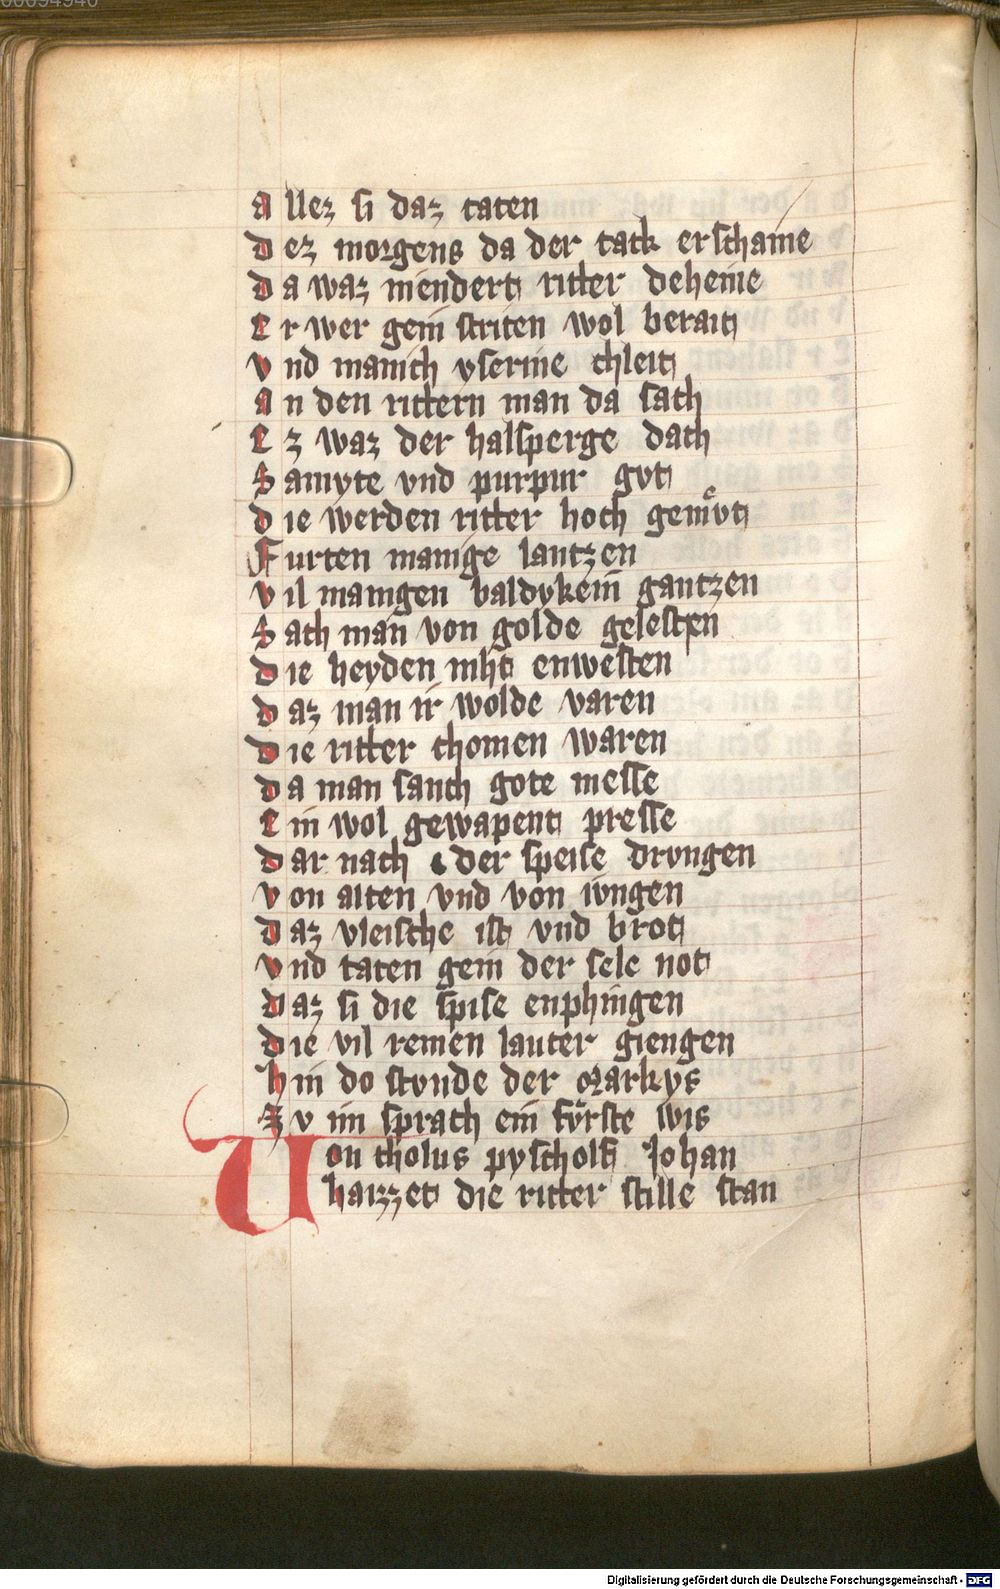 00094946
allez si daz taten
dez morgens da der tack erschaine
da waz niendert ritter deheine
Er wer gein striten wol berait
vnd manich yserine chleit
an den rittern man da sach
Ez waz der halsperge dach
Samyte vnd purpur gvt
die werden ritter hoch gemv̊t
Furten manige lantzen
vil manigen baldykein gantzen
Sach man von golde gelesten
die heyden niht enwesten
daz man ir wolde varen
die ritter chomen waren
da man sanch gote messe
Ein wol gewapent presse
dar nach der speise drvngen
von alten vnd von ivngen
daz vleische ist vnd brot
vnd taten gein der sele not
daz si die spise enphingen
die vil reinen lauter giengen
hin do stvnde der Markys
Zv im sprach ein fvrste wis
Von tholus pyscholf Johan
haizzet die ritter stille stan
Digitalisierung gefördert durch die Deutsche Forschungsgemeinschaft - DFG